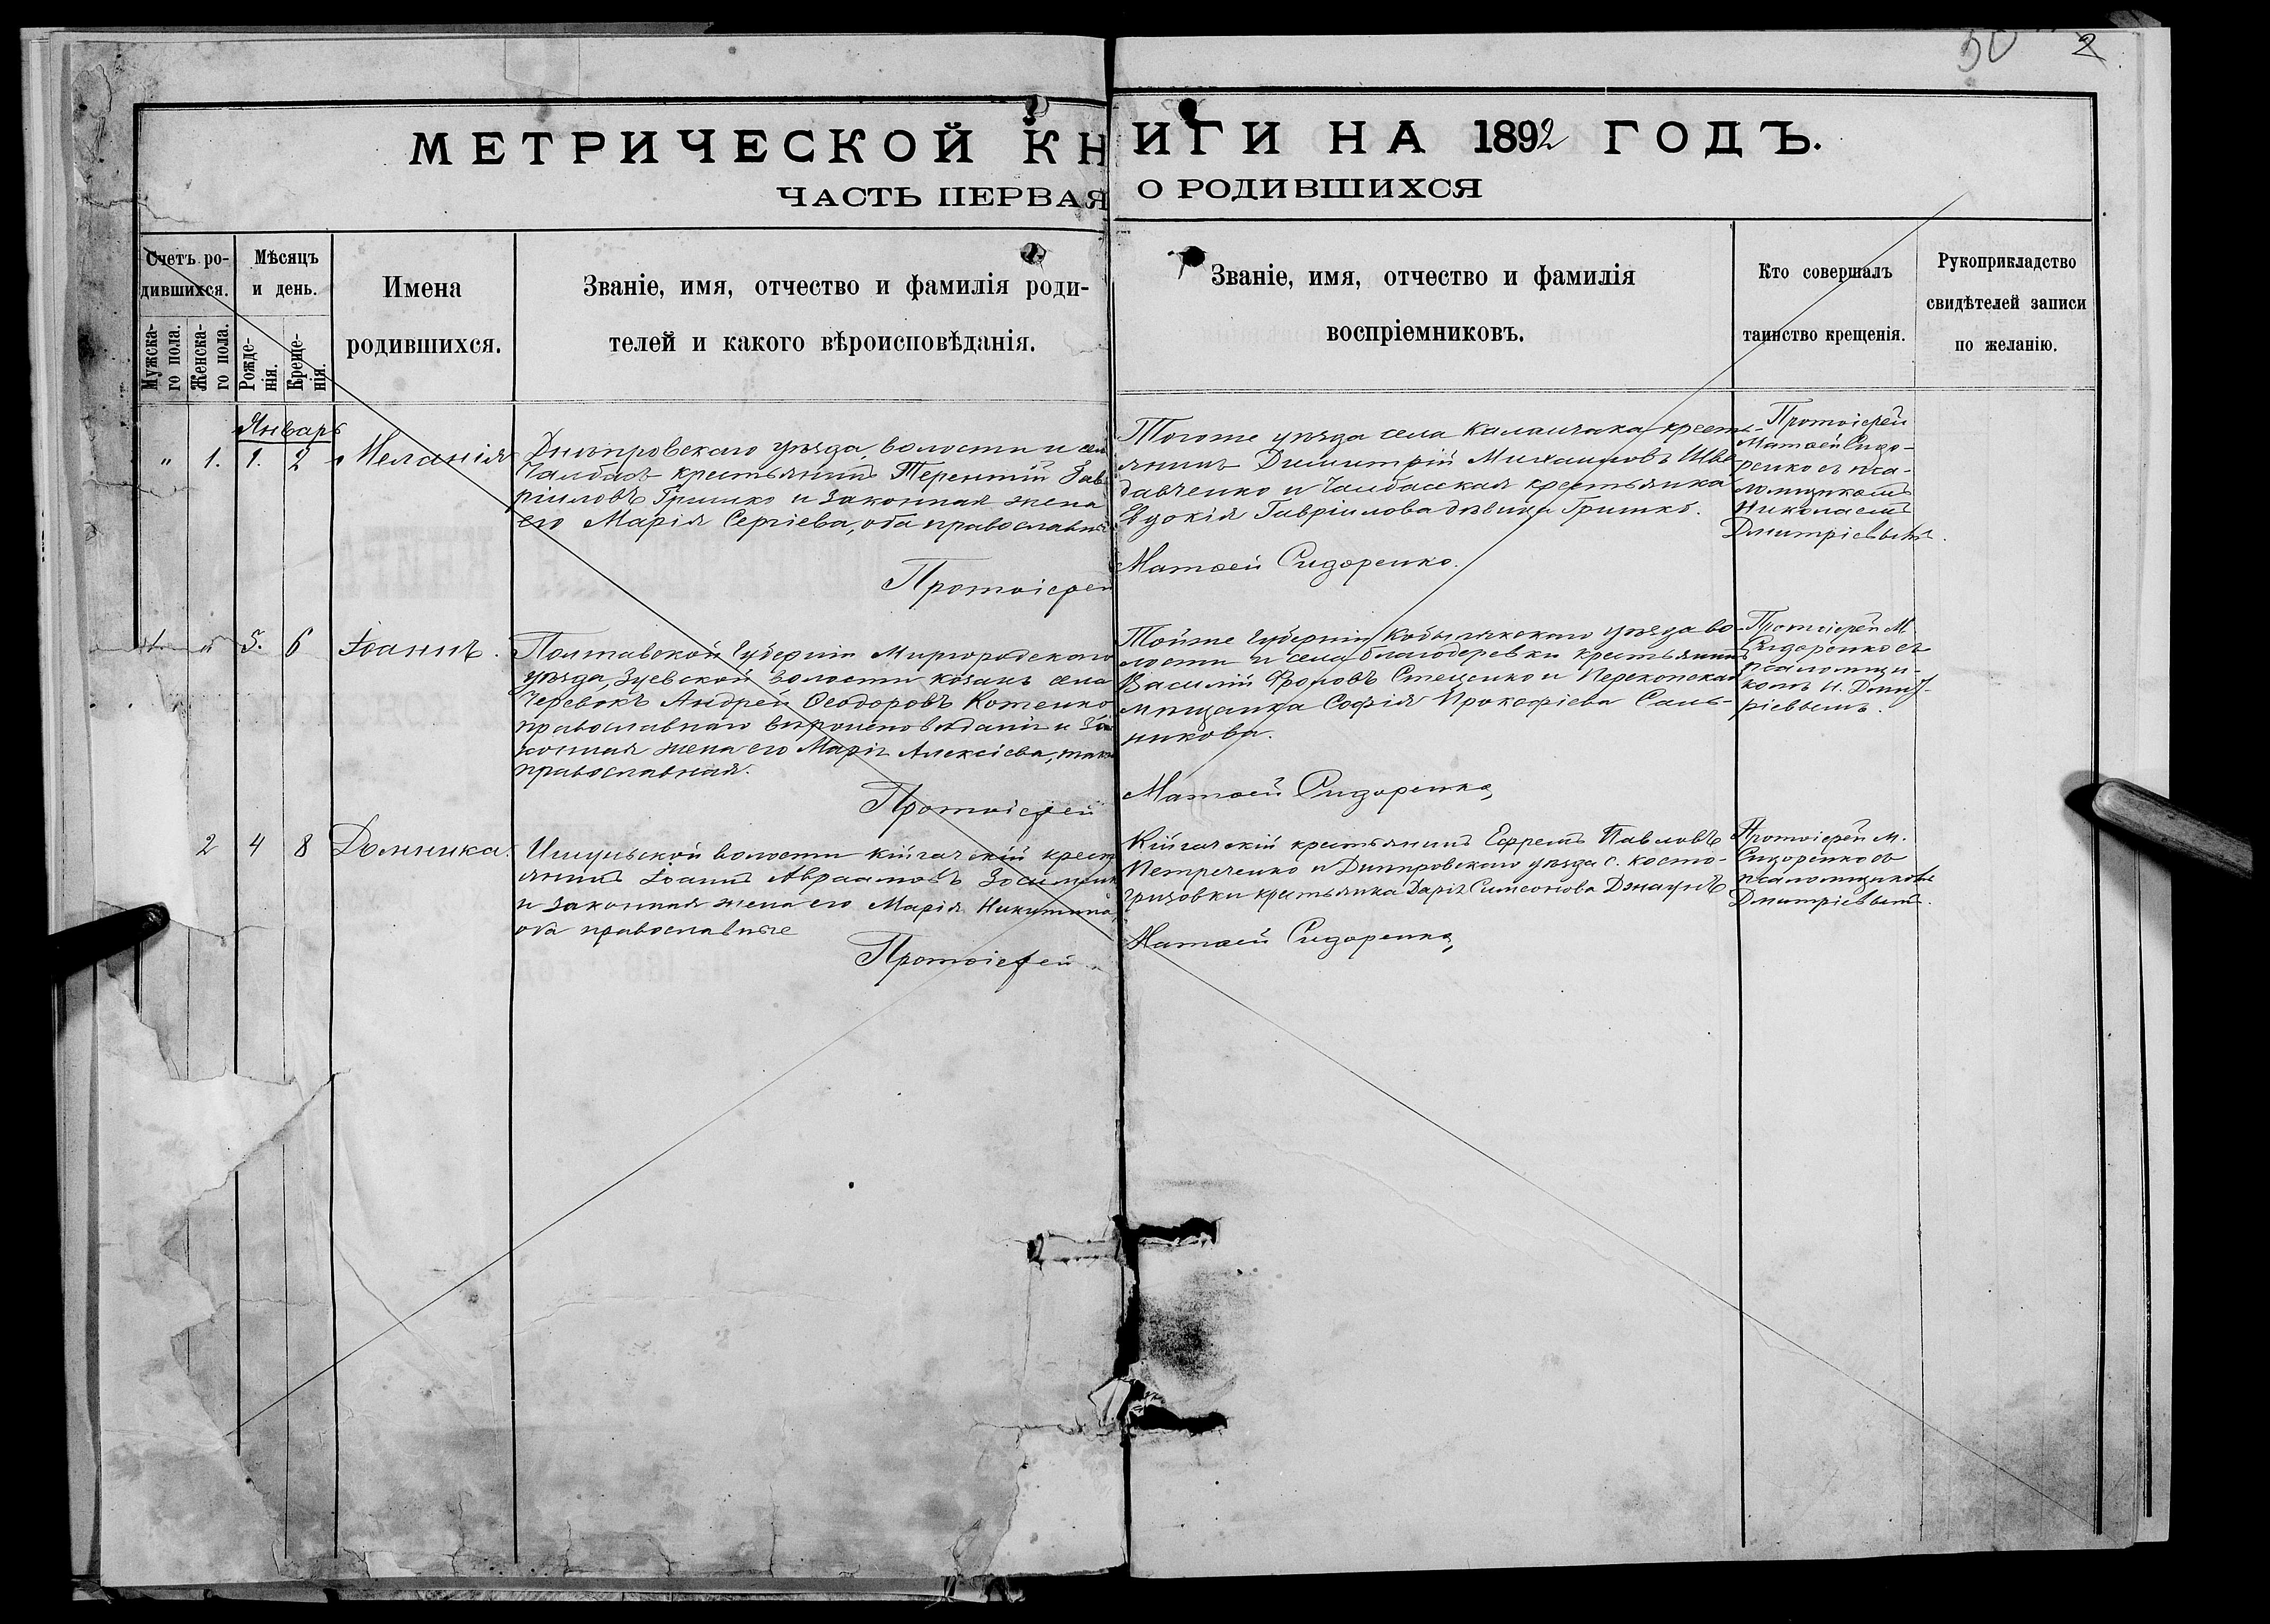 50 2
МЕТРИЧЕСКОЙ КНИГИ НА 1892 ГОДЪ.
ЧАСТЬ ПЕРВАЯ О РОДИВШИХСЯ
Счетъ ро-
дившихся.
Мужска-
го пола.
Женска-
го пола.
Мѣсяцъ
и день.
Рожде-
нія.
Креще-
нія.
Имена
родившихся.
Званіе, имя, отчество и фамилія роди-
телей и какого вѣроисповѣданія.
Званіе, имя, отчество и фамилія
воспріемниковъ.
Кто совершалъ
таинство крещенія.
Рукоприкладство
свидѣтелей записи
по желанію.
Январь
" 1. 1. 2
Меланія
Днѣпровскаго уѣзда, волости и сел
Чалбасъ крестьянинъ Терентій Гав
ріиловъ Гришко и законная жена
его Марія Сергіева, оба православны
Протоіерей
Тогоже уѣзда села Каланчака кресть-
янинъ Димитрій Михаиловъ Шве
давченко и Чалбасская крестьянка
Евдокія Гавріилова дѣвица Гришко.
Матѳей Сидоренко.
Протоіерей
Матѳей Сидо-
ренко съ пса-
ломщикомъ
Николаемъ
Дмитріевымъ.
5. 6
Іоаннъ.
Полтавской Губерніи Миргородскаго
уѣзда, Зуевской волости козакъ села
Черевокъ Андрей Ѳеодоровъ Котенко
православнаго вѣроисповѣданія и за
конная жена его Марія Алексіева, так
православная.
Протоіерей
Тойже Губерніи Кобылякскаго уѣзда во-
лости и села Благодеревки крестьянинъ
Василій Фроловъ Стеценко и Перекопская
мѣщанка Софія Прокофіева Саль-
никова.
Матѳей Сидоренко
Протоіерей М.
Сидоренко съ
псаломщи-
комъ Н. Дмит-
ріевымъ.
2 4 8
Домника.
волости крест
янинъ Іоаннъ Авраамовъ
и законная жена его Марія Никитина,
оба православные
Протоіерей
крестьянинъ Ефремъ Павловъ
Петренко и Днѣпровскаго уѣзда с. Косто-
гризовки крестьянка Дарія Симеонова
Матѳей Сидоренко
Протоіерей М.
Сидоренко съ
псаломщикомъ
Дмитріевымъ.